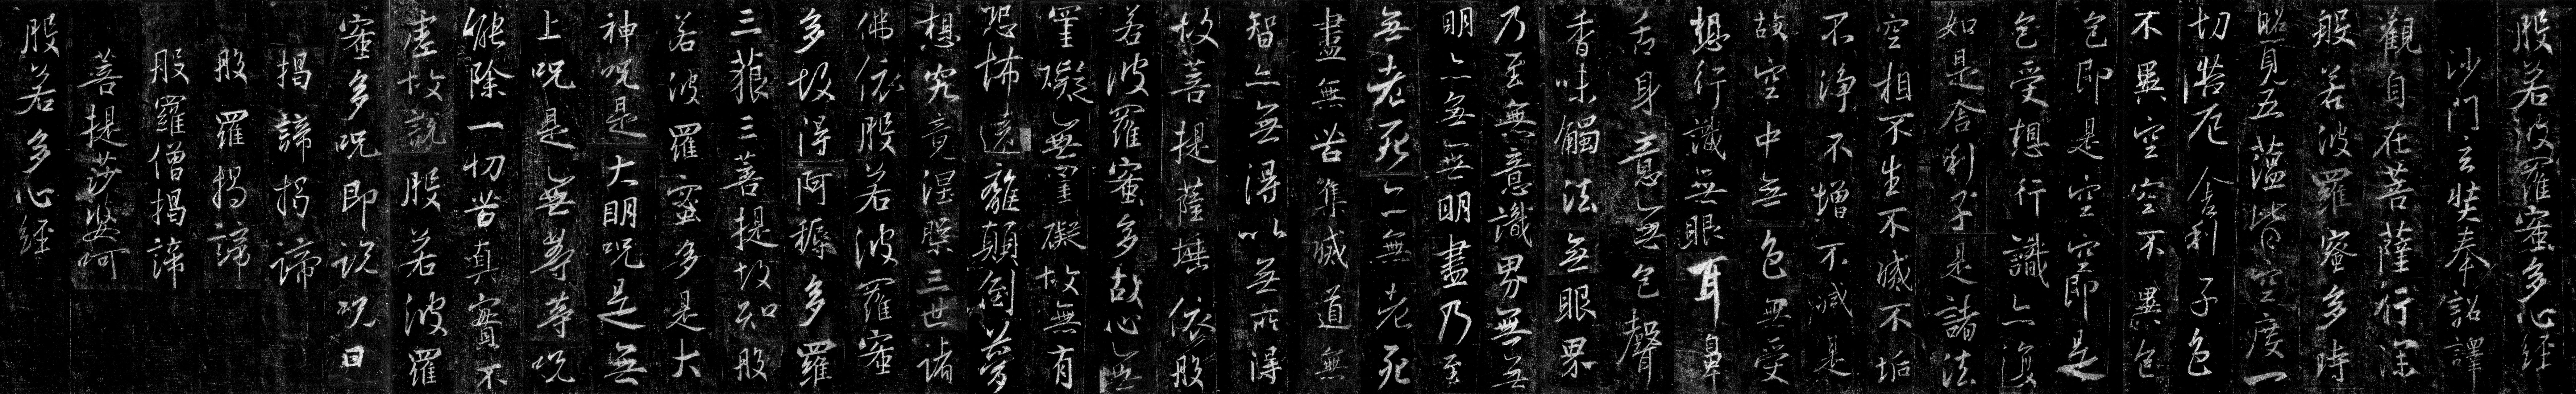 般若波羅蜜多心經
沙門玄奘奉詔譯
觀自在菩薩行深
般若波羅蜜多時
照見五蘊皆空度一
切苦厄舍利子色
不異空空不異色
色即是空空即是
色受想行識亦復
如是舍利子是諸法
空相不生不滅不垢
不淨不增不減是
故空中無色無受
想行識無眼耳鼻
舌身意無色聲
香味觸法無眼界
乃至無意識界無無
明亦無無明盡乃至
無老死亦無老死
盡無苦集滅道無
智亦無得以無所得
故菩提薩埵依般
若波羅蜜多故心無
罣礙無罣礙故無有
恐怖遠離顛倒夢
想究竟涅槃三世諸
佛依般若波羅蜜
多故得阿耨多羅
三藐三菩提故知般
若波羅蜜多是大
神呪是大明呪是無
上呪是無等等呪
能除一切苦真實不
虛故說般若波羅
蜜多呪即說呪曰
揭諦揭諦
般羅揭諦
般羅僧揭諦
菩提莎婆呵
般若多心經